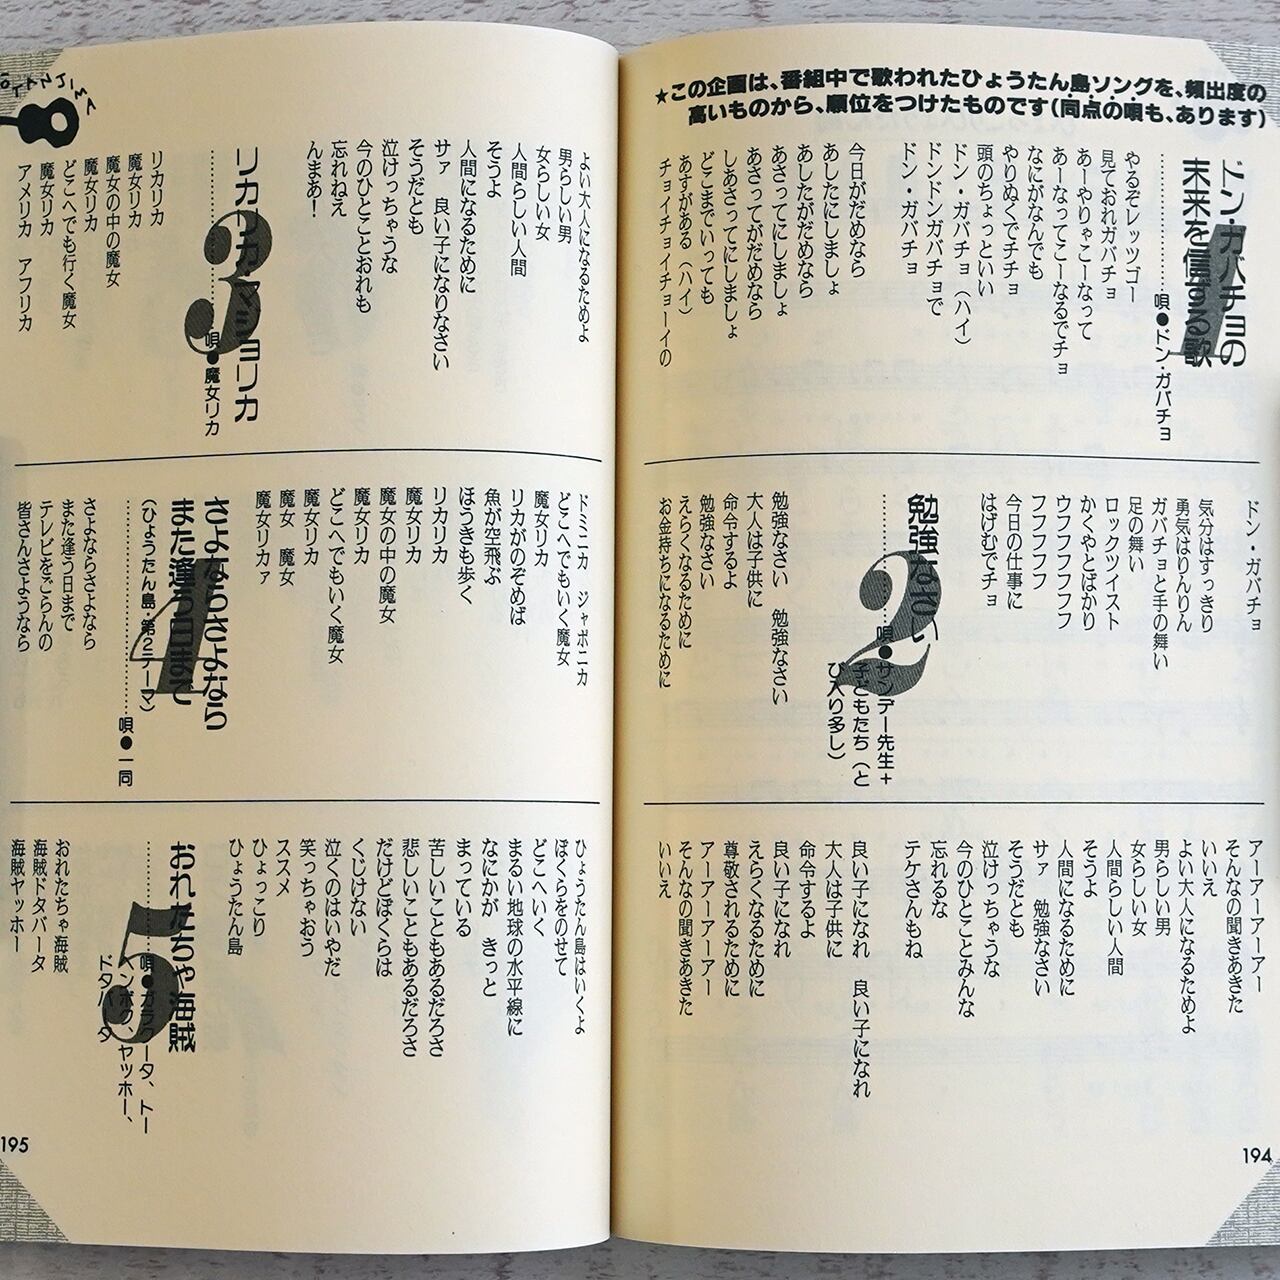 ★この企画は、番組中で歌われたひょうたん島ソングを、頻出度の
高いものから、順位をつけたものです(同点の唄も、あります)
1
ドン・ガバチョの
未来を信ずる歌
唄●ドン・ガバチョ
やるぞレッツゴー
見ておれガバチョ
あーやりゃこーなって
あーなってこーなるでチョ
なにがなんでも
やりぬくでチチョ
頭のちょっといい
ドン・ガバチョ(ハイ)
ドンドンガバチョで
ドン・ガバチョ
今日がだめなら
あしたにしましょ
あしたがだめなら
あさってにしましょ
あさってがだめなら
しあさってにしましょ
どこまでいっても
あすがある(ハイ)
チョイチョイチョーイの
ドン・ガバチョ
気分はすっきり
勇気はりんりん
ガバチョと手の舞い
足の舞い
ロックツイスト
かくやとばかり
ウフフフフフフ
フフフフフ
今日の仕事に
はげむでチョ
2
勉強なさい
唄●サンデー先生+
子どもたち(と
び入り多し)
勉強なさい 勉強なさい
大人は子供に
命令するよ
勉強なさい
えらくなるために
お金持ちになるために
アーアーアーアーアー
そんなの聞きあきた
いいえ
よい大人になるためよ
男らしい男
女らしい女
人間らしい人間
そうよ
人間になるために
サァ 勉強なさい
そうだとも
泣けっちゃうな
今のひとことみんな
忘れるな
テケさんもね
良い子になれ 良い子になれ
大人は子供に
命令するよ
良い子になれ
えらくなるために
尊敬されるために
アーアーアーアー
そんなの聞きあきた
いいえ
194
よい大人になるためよ
男らしい男
女らしい女
人間らしい人間
そうよ
人間になるために
サァ 良い子になりなさい
そうだとも
泣けっちゃうな
今のひとことおれも
忘れねえ
んまあ!
3
リカリカ・マジョリカ
唄●魔女リカ
リカリカ
魔女リカ
魔女の中の魔女
魔女リカ
どこへでも行く魔女
魔女リカ
アメリカ アフリカ
ドミニカ ジャポニカ
どこへでもいく魔女
魔女リカ
リカがのぞめば
魚が空飛ぶ
ほうきも歩く
リカリカ
魔女リカ
魔女の中の魔女
魔女リカ
どこへでもいく魔女
魔女リカ
魔女 魔女
魔女リカァ
4
さよならさよなら
また逢う日まで
(ひょうたん島・第2テーマ)
唄●一同
さよならさよなら
また逢う日まで
テレビをごらんの
皆さんさようなら
ひょうたん島はいくよ
ぼくらをのせて
どこへいく
まるい地球の水平線に
なにかが きっと
まっている
苦しいこともあるだろさ
悲しいこともあるだろさ
だけどぼくらは
くじけない
泣くのはいやだ
笑っちゃおう
ススメ
ひょっこり
ひょうたん島
5
おれたちゃ海賊
唄●ガラクータ、トー
ヘンボク、ヤッホー、
ドタバータ
おれたちゃ海賊
海賊ドタバータ
海賊ヤッホー
195